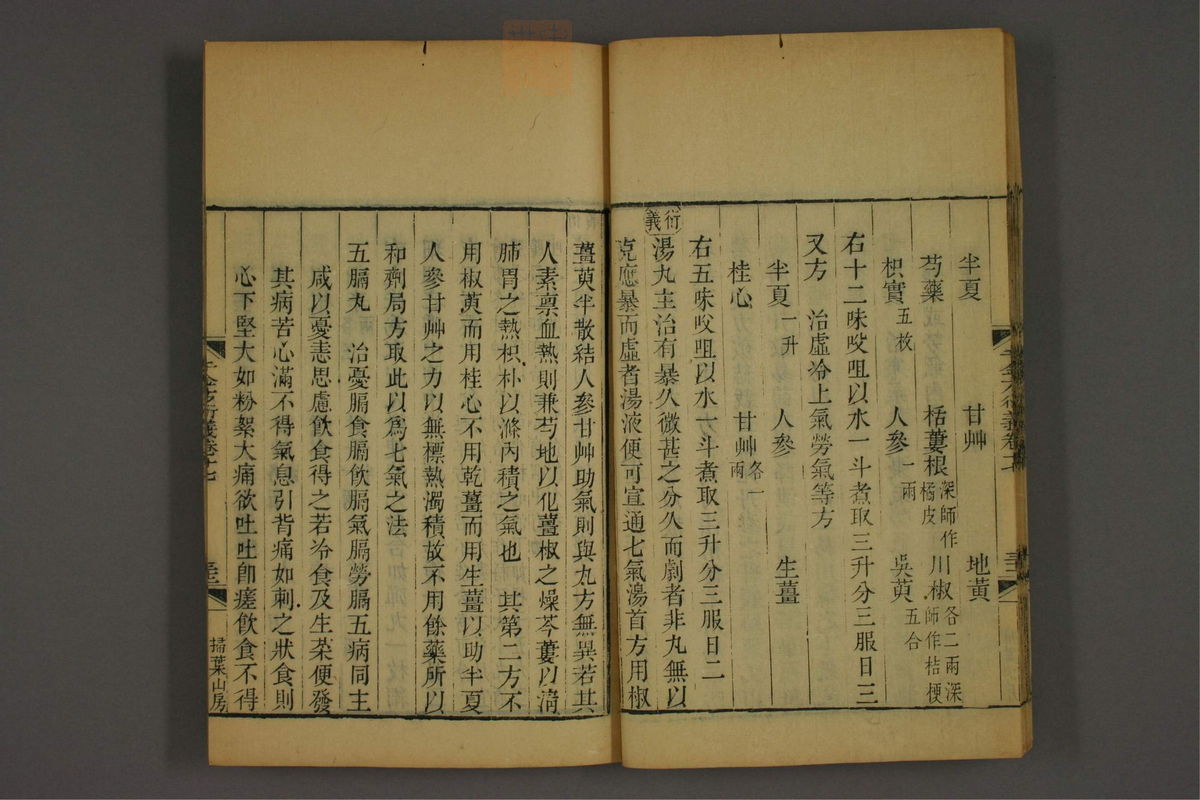 半夏 甘艸 地黃
芍藥 栝蔞根深師作橘皮 川椒各二兩深師作桔梗
枳實五枚 人參一兩 吳萸五合
右十二味㕮咀以水一斗煮取三升分三服日三
又方 治虛冷上氣勞氣等方
半夏一升 人參 生薑
桂心 甘艸各一兩
右五味㕮咀以水一斗煮取三升分三服日二
衍義
湯丸主治有暴久微甚之分久而劇者非丸無以
克應暴而虛者湯液便可宣通七氣湯首方用椒
薑萸半散結人參甘艸助氣則與丸方無異若其
人素禀血熱則兼芍地以化薑椒之燥芩蔞以淸
肺胃之熱枳朴以滌內積之氣也 其第二方不
用椒萸而用桂心不用乾薑而用生薑以助半夏
人參甘艸之力以無標熱濁積故不用餘藥所以
和劑局方取此以爲七氣之法
五膈丸 治憂膈食膈飮膈氣膈勞膈五病同主
咸以憂恚思慮飮食得之若冷食及生菜便發
其病苦心滿不得氣息引背痛如刺之狀食則
心下堅大如粉絮大痛欲吐吐卽瘥飮食不得
千金方衍義卷十七
掃葉山房